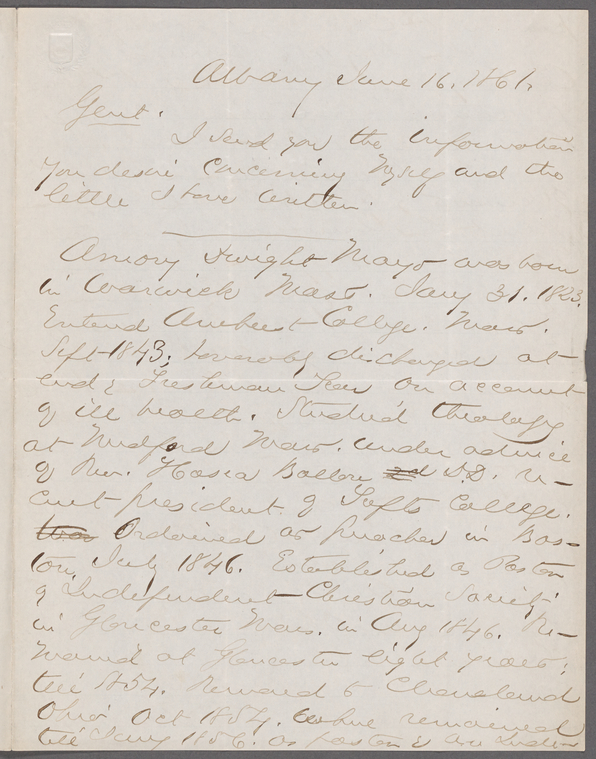 Albany June 16. 1861.
Gent.
I send you the information
you desire concerning myself and the
little I have written.
Amory Dwight Mayo was born
in Warwick Mass. Jany 31. 1823.
Entered Amherst College. Mass.
Sept 1843; honorably discharged at
end of Freshman Year on account
of ill health. Studied theology
at Medford Mass. under advice
of Rev. Hosea Ballou 2d D.D. re-
cent president of Tufts College.
Was Ordained as preacher in Bos-
ton, July 1846. Established as Pastor
of Independent Christian Society
in Gloucester Mass. in Aug 1846. Re-
mained at Gloucester eight years;
till 1854. Removed to Cleaveland
Ohio Oct 1854. where remained
till Jany 1856. as pastor of an